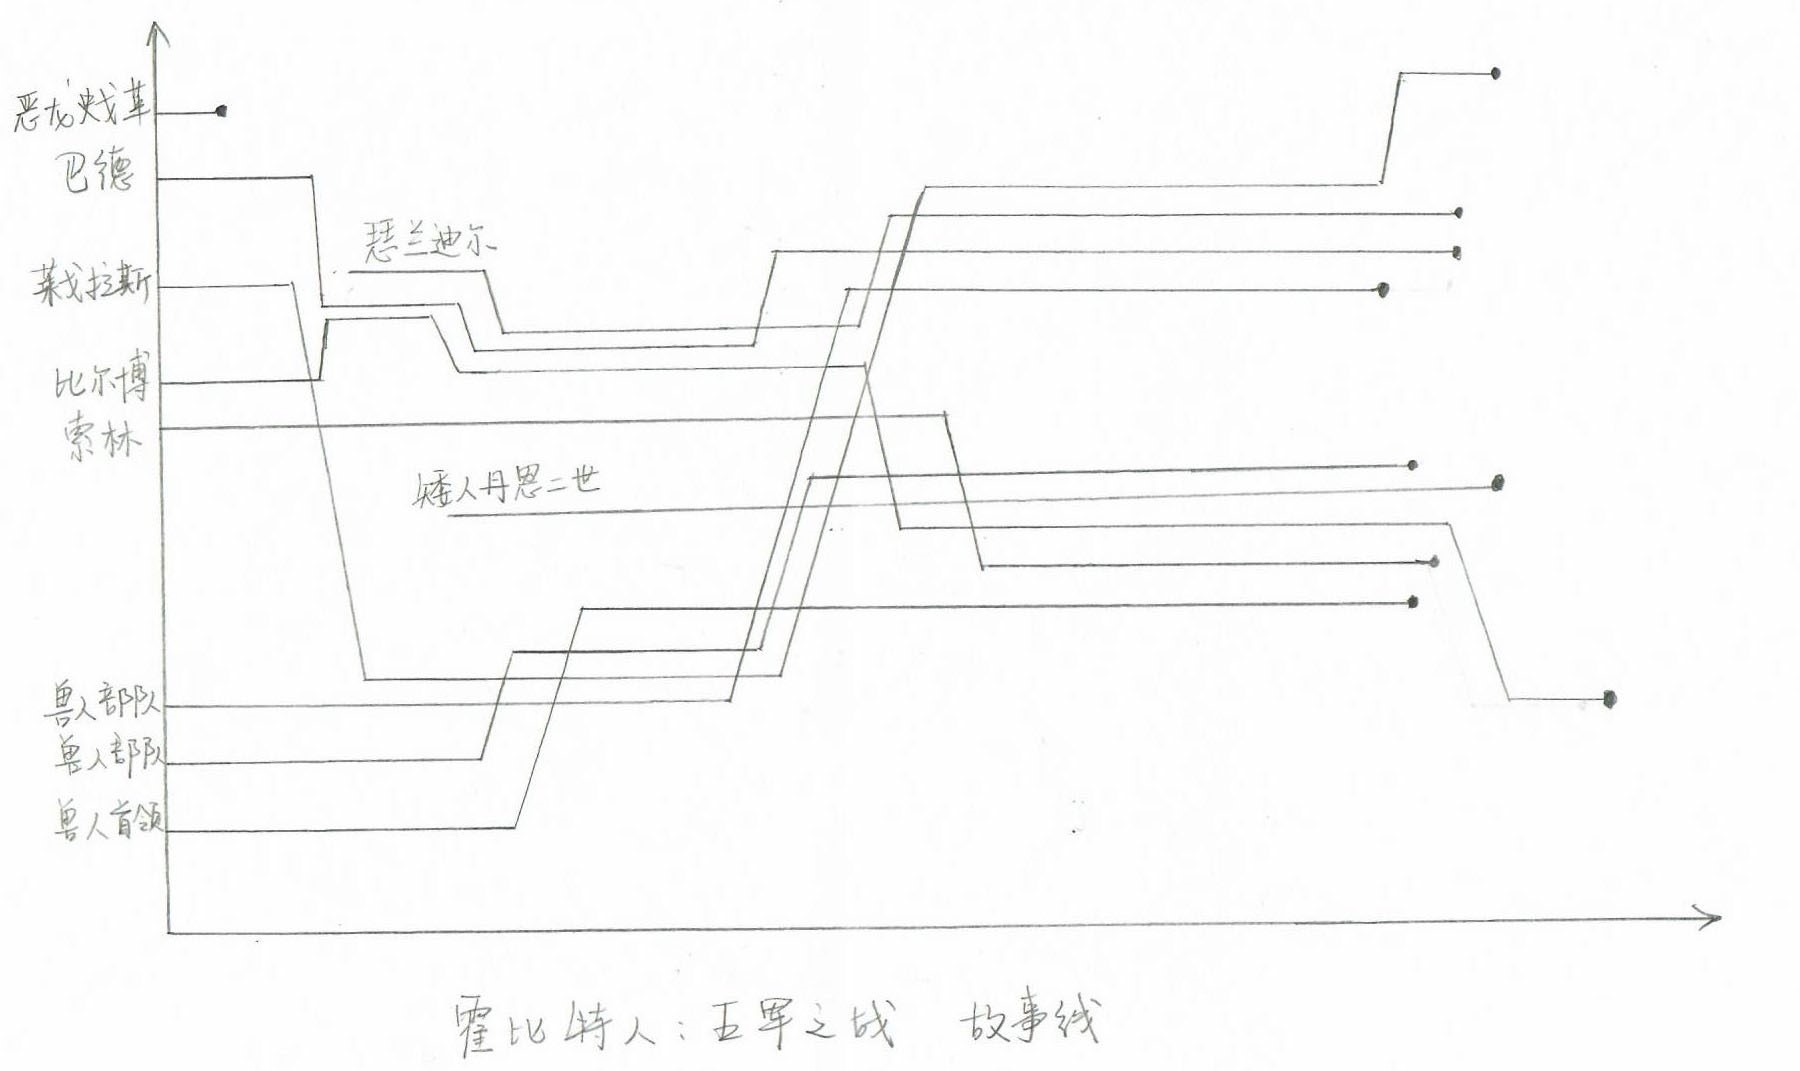 恶龙史戈革
巴德
瑟兰迪尔
莱戈拉斯
比尔博
索林
矮人丹恩二世
兽人部队
兽人部队
兽人首领
霍比特人：五军之战 故事线